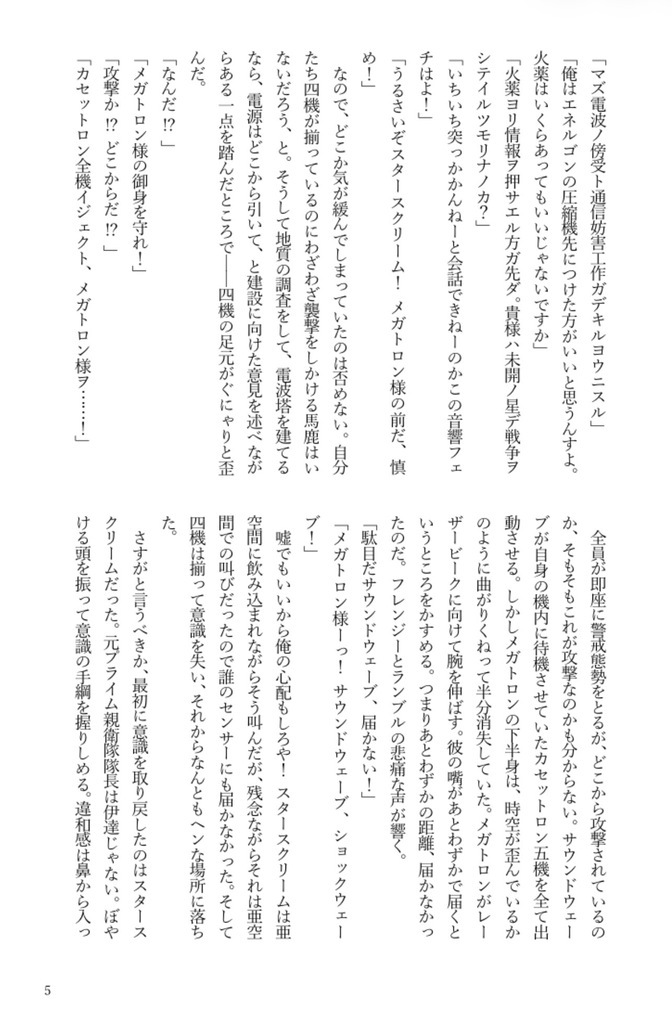 「マズ電波ノ傍受ト通信妨害工作ガデキルヨウニスル」
「俺はエネルゴンの圧縮機先につけた方がいいと思うんすよ。
火薬はいくらあってもいいじゃないですか」
「火薬ヨリ情報ヲ押サエル方ガ先ダ。貴様ハ未開ノ星デ戦争ヲ
シテイルツモリナノカ？」
「いちいち突っかかんねーと会話できねーのかこの音響フェ
チはよ！」
「うるさいぞスタースクリーム！　メガトロン様の前だ、慎
め！」
　なので、どこか気が緩んでしまっていたのは否めない。自分
たち四機が揃っているのにわざわざ襲撃をしかける馬鹿はい
ないだろう、と。そうして地質の調査をして、電波塔を建てる
なら、電源はどこから引いて、と建設に向けた意見を述べなが
らある一点を踏んだところで――四機の足元がぐにゃりと歪
んだ。
「なんだ!?」
「メガトロン様の御身を守れ！」
「攻撃か!?　どこからだ!?」
「カセットロン全機イジェクト、メガトロン様ヲ……！」
　全員が即座に警戒態勢をとるが、どこから攻撃されているの
か、そもそもこれが攻撃なのかも分からない。サウンドウェー
ブが自身の機内に待機させていたカセットロン五機を全て出
動させる。しかしメガトロンの下半身は、時空が歪んでいるか
のように曲がりくねって半分消失していた。メガトロンがレー
ザービークに向けて腕を伸ばす。彼の嘴があとわずかで届くと
いうところをかすめる。つまりあとわずかの距離、届かなかっ
たのだ。フレンジーとランブルの悲痛な声が響く。
「駄目だサウンドウェーブ、届かない！」
「メガトロン様ーっ！　サウンドウェーブ、ショックウェー
ブ！」
　嘘でもいいから俺の心配もしろや！　スタースクリームは亜
空間に飲み込まれながらそう叫んだが、残念ながらそれは亜空
間での叫びだったので誰のセンサーにも届かなかった。そして
四機は揃って意識を失い、それからなんともヘンな場所に落ち
た。
　さすがと言うべきか、最初に意識を取り戻したのはスタース
クリームだった。元プライム親衛隊隊長は伊達じゃない。ぼや
ける頭を振って意識の手綱を握りしめる。違和感は鼻から入っ
5